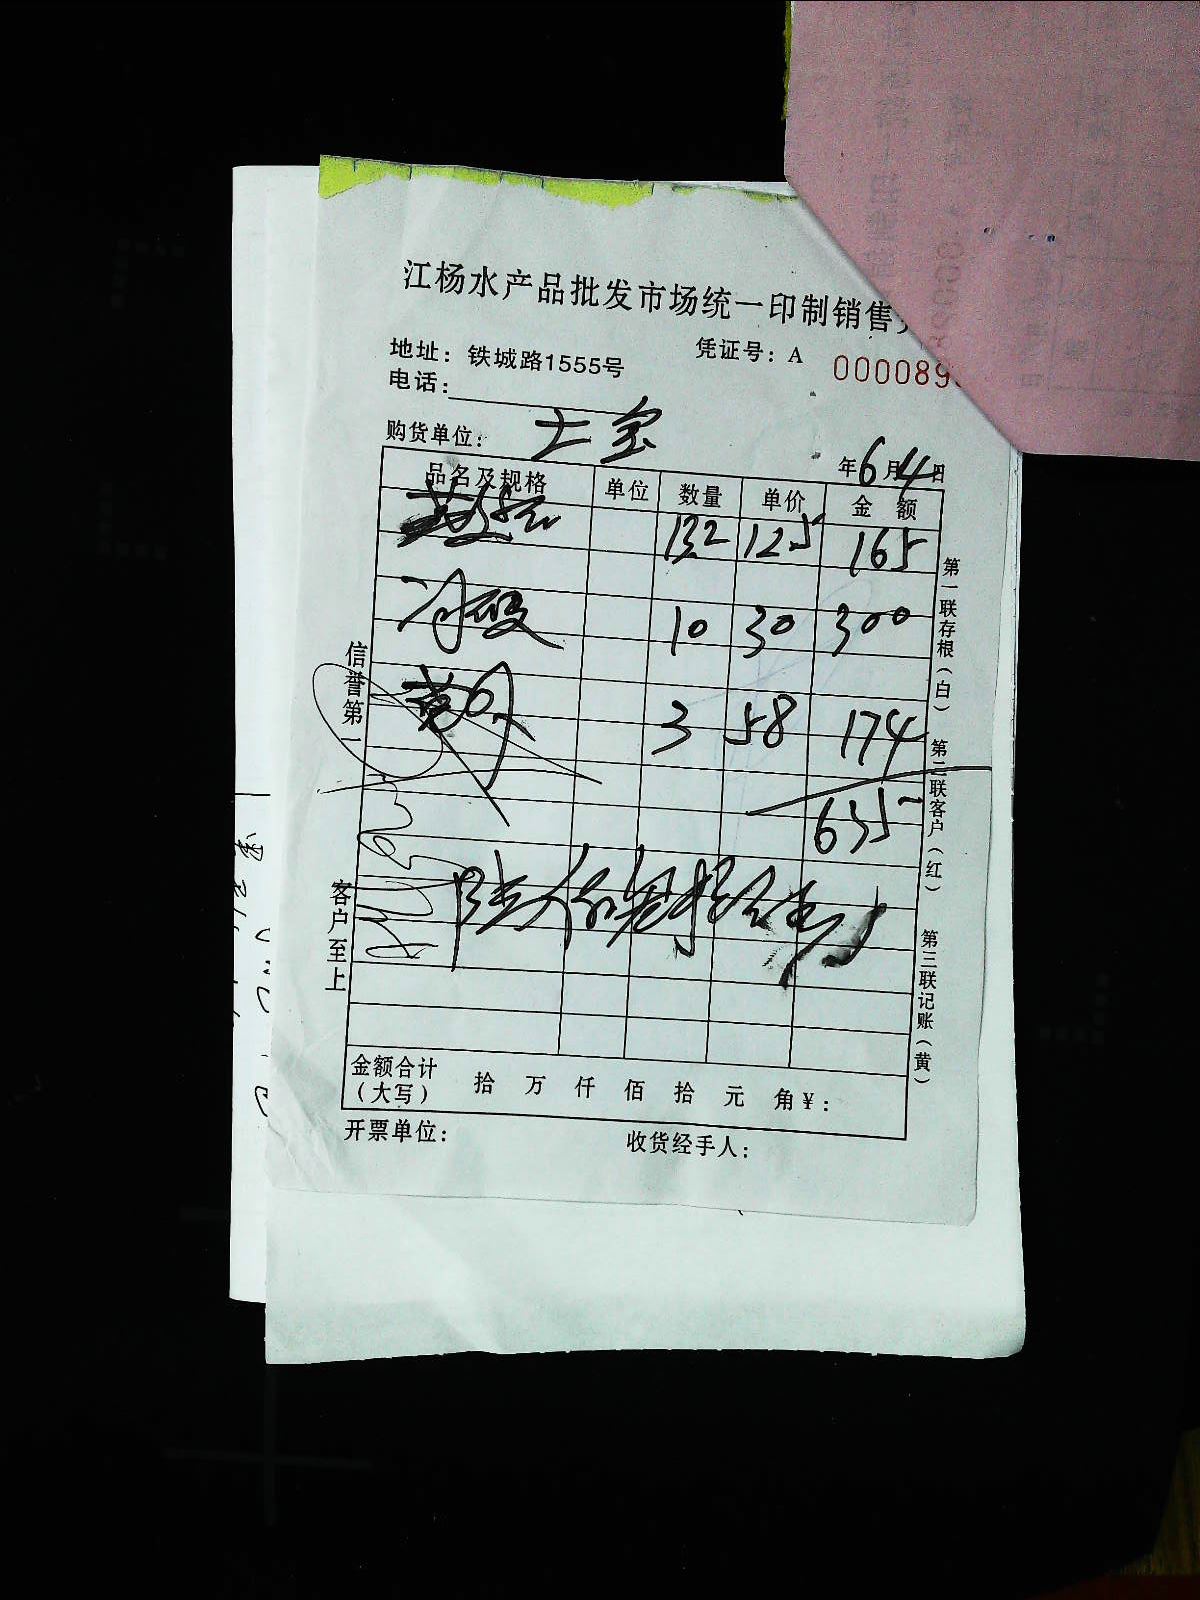 江杨水产品批发市场统一印制销售
地址：铁城路1555号
凭证号：A 000089
电话：
购货单位：士宝
年6月4日
品名及规格 单位 数量 单价 金额
132 125 165
冷 10 30 300
3 58 174
635
陆佰叁拾伍
金额合计（大写） 拾 万 仟 佰 拾 元 角 ¥：
开票单位： 收货经手人：
信誉第一
客户至上
第一联存根（白）
第二联客户（红）
第三联记账（黄）